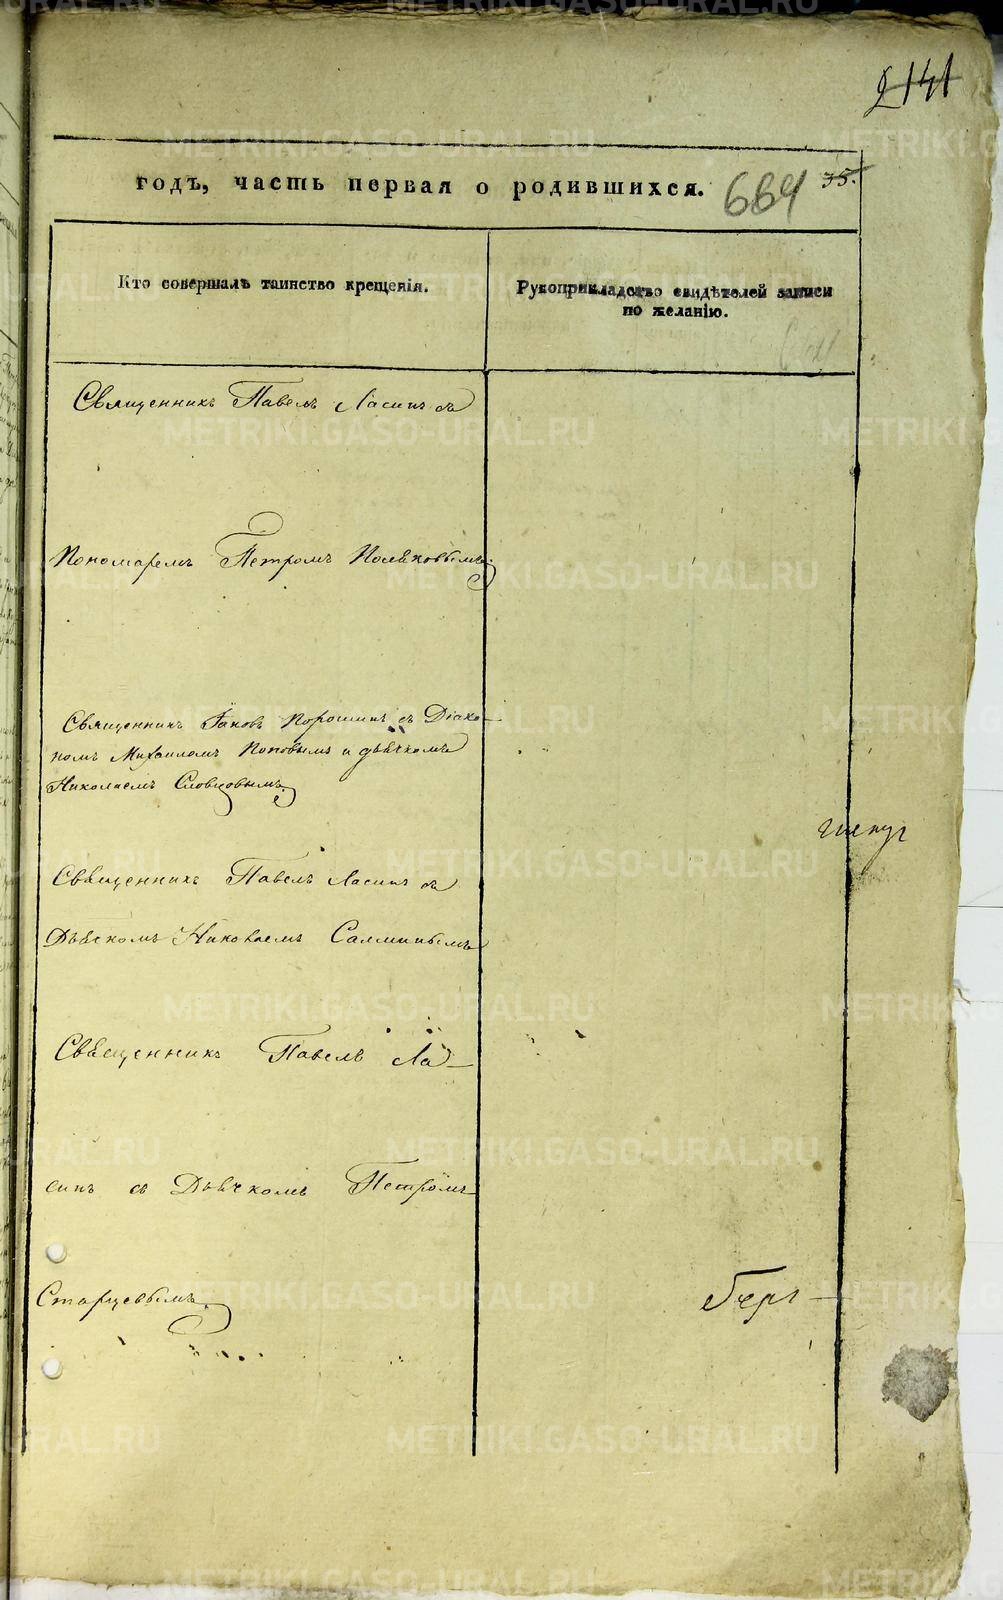 2141
годъ, часть первая о родившихся. 664 35.
Кто совершалъ таинство крещенія.
Рукоприкладство свидѣтелей записи
по желанію.
Священникъ Павелъ Ласинъ съ
Пономаремъ Петромъ Поляковымъ.
Священникъ Іаковъ Порошинъ съ Діако-
номъ Михаиломъ Поповымъ и дьячкомъ
Николаемъ Словцовымъ.
Священникъ Павелъ Ласинъ съ
Дьячкомъ Николаемъ Салминымъ
Священникъ Павелъ Ла-
синъ съ Дьячкомъ Петромъ
Старцевымъ.
METRIKI.GASO-URAL.RU